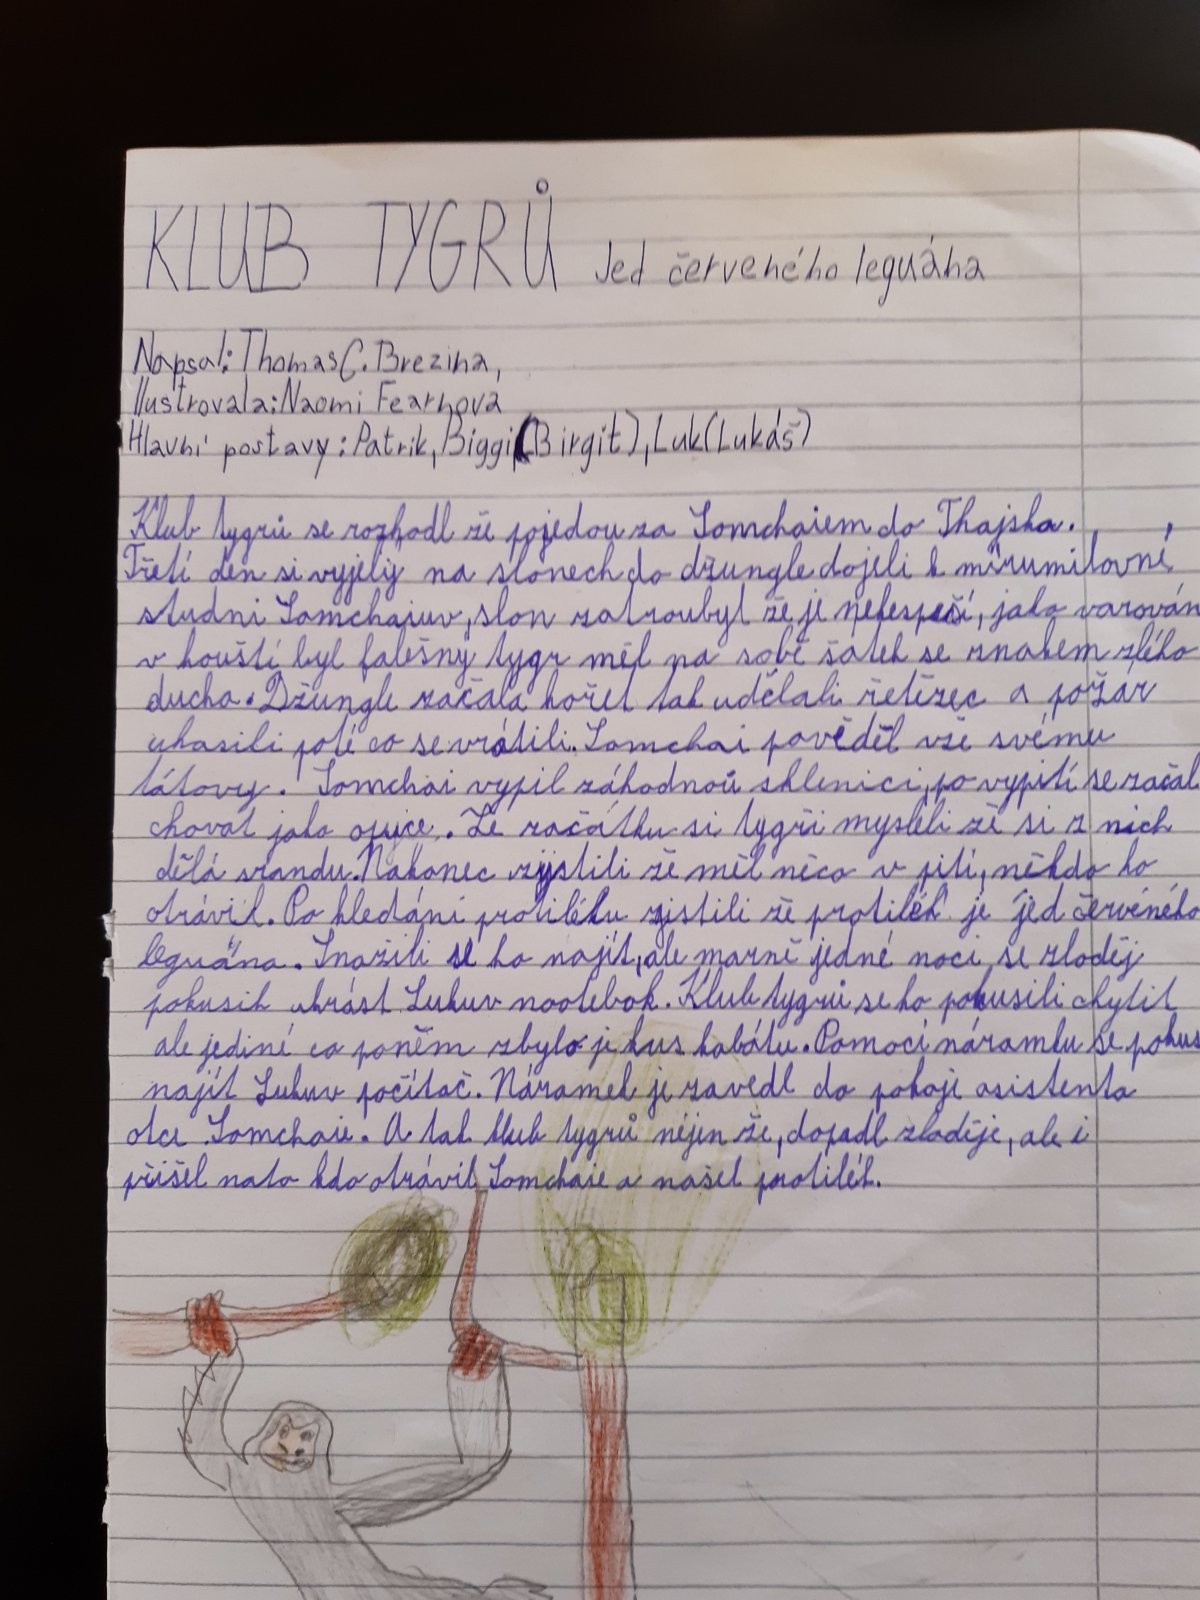 KLUB TYGRŮ Jed červeného leguána
Napsal: Thomas C. Brezina,
Ilustrovala: Naomi Fearnová
Hlavní postavy: Patrik, Biggi, (Birgit), Luk (Lukáš)
Klub tygrů se rozhodl že pojedou za Somchaiem do Thajska.
Třetí den si vyjely na slonech do džungle dojeli k mírumilovné
studni Somchaiuv, slon zatroubyl že je nebespečí, jako varován
v houští byl falešný tygr měl na sobě šátek se znakem zlého
ducha. Džungle začala hořet tak udělali řetězec a požár
uhasili poté co se vrátili. Somchai pověděl vše svému
tátovy. Somchai vypil záhodnoů sklenici, po vypití se začal
chovat jako opice. Ze začátku si tygři mysleli že si z nich
dělá srandu. Nakonec zjistili že měl něco v pití, někdo ho
otrávil. Po hledání protiléku zjistili že protilék je jed červeného
leguána. Snažili se ho najít, ale marně jedné noci se zloděj
pokusil ukrást Lukuv nootebok. Klub tygrů se ho pokusili chytit
ale jediné co poněm zbylo je kus kabátu. Pomocí náramku se pokus
najít Lukuv počítač. Náramek je zavedl do pokoje asistenta
otce Somchaie. A tak klub tygrů nejen že, dopadl zloděje, ale i
přišel nato kdo otrávil Somchaie a našel protilék.